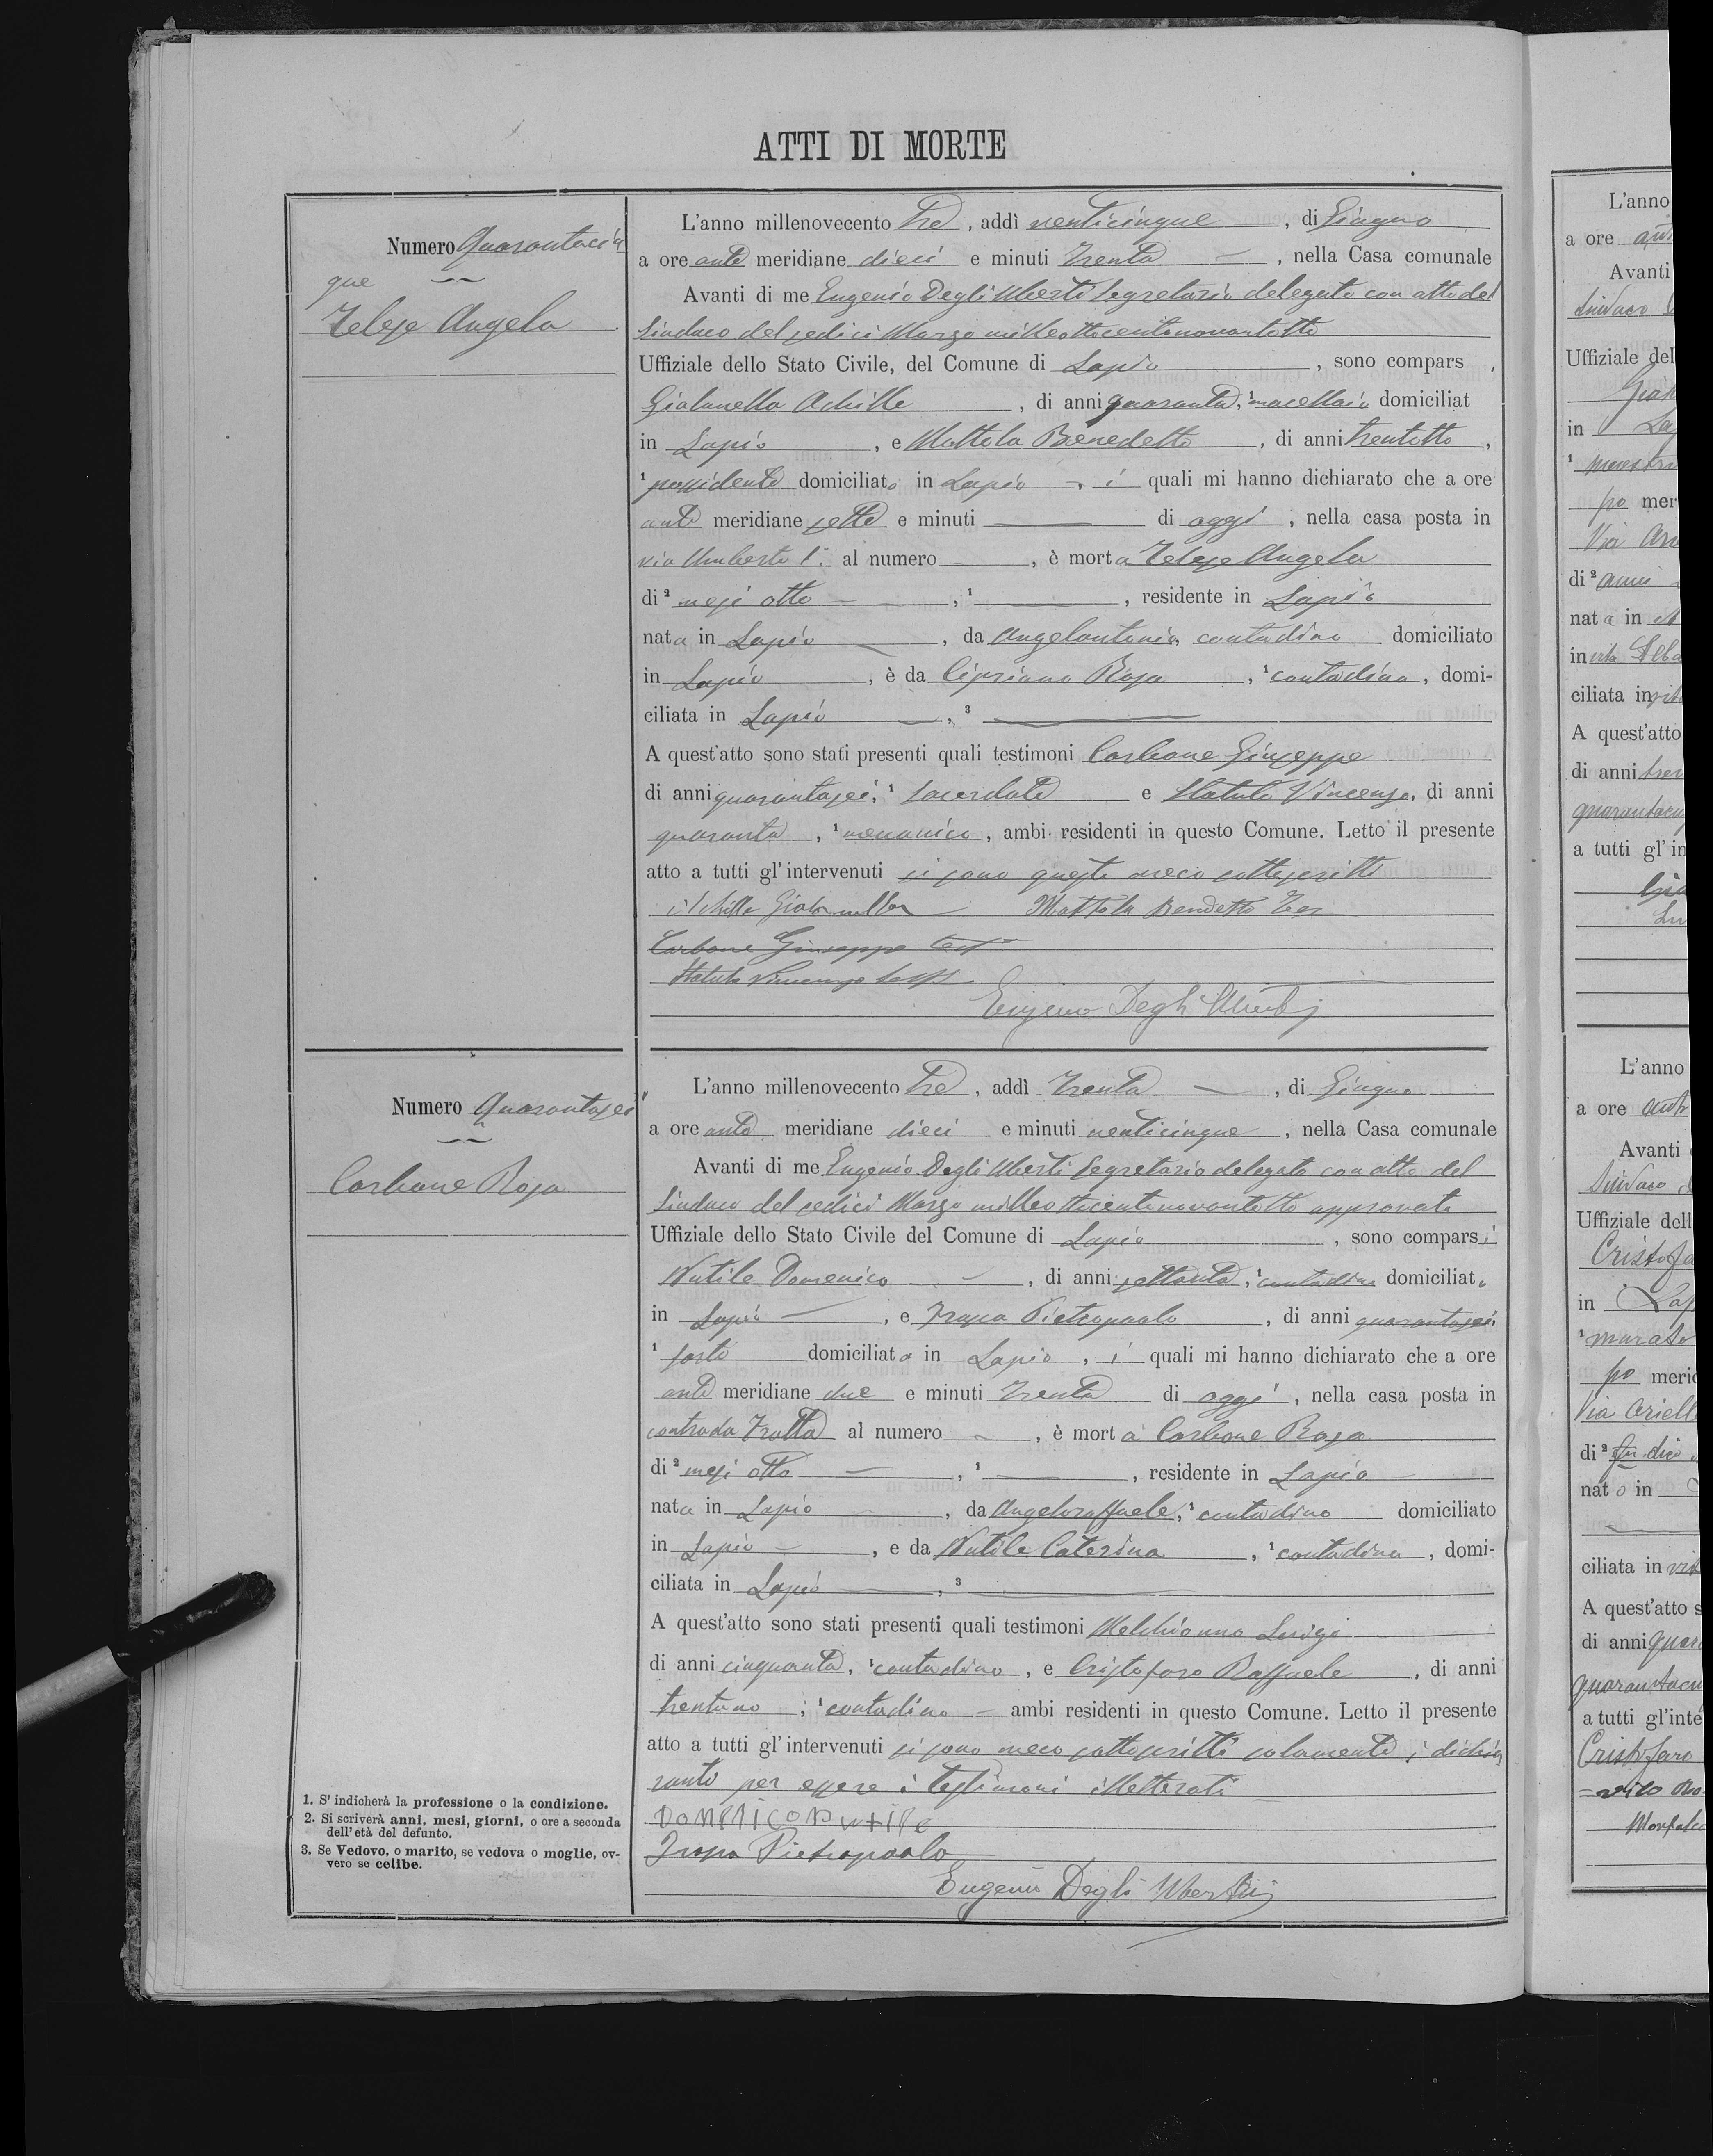 ATTI DI MORTE
Numero Quarantacin
que
Telese Angela
L'anno millenovecento tre, addì venticinque, di Giugno
a ore ante meridiane dieci e minuti trenta, nella Casa comunale
Avanti di me Eugenio Degli Uberti Segretario delegato con atto del
Sindaco del sedici Marzo milleottocentonovantotto
Uffiziale dello Stato Civile, del Comune di Lapio, sono compars
Gialanella Achille, di anni quaranta, ¹ macellaio domiciliat
in Lapio, e Mottola Benedetto, di anni trentotto,
¹ possidente domiciliato in Lapio, i quali mi hanno dichiarato che a ore
ante meridiane sette e minuti — di oggi, nella casa posta in
via Umberto 1°. al numero —, è morta Telese Angela
di ² mesi otto —, ¹ —, residente in Lapio
nata in Lapio —, da Angelantonio, contadino domiciliato
in Lapio, è da Cipriano Rosa, ¹ contadina, domi-
ciliata in Lapio —, ³ —
A quest'atto sono stati presenti quali testimoni Carbone Giuseppe
di anni quarantasei, ¹ sacerdote e Statuto Vincenzo, di anni
quaranta, ¹ meccanico, ambi residenti in questo Comune. Letto il presente
atto a tutti gl'intervenuti si sono questi meco sottoscritti
Achille Gialanella Mottola Benedetto Tes
Carbone Giuseppe test
Statuto Vincenzo test
Eugenio Degli Uberti
Numero Quarantasei
Carbone Rosa
L'anno millenovecento tre, addì trenta —, di Giugno
a ore ante meridiane dieci e minuti venticinque, nella Casa comunale
Avanti di me Eugenio Degli Uberti Segretario delegato con atto del
Sindaco del sedici Marzo milleottocentonovantotto approvato
Uffiziale dello Stato Civile del Comune di Lapio, sono comparsi
Nutile Domenico —, di anni settanta, ¹ contadino domiciliato
in Lapio —, e Trapa Pietropaolo, di anni quarantasei
¹ sarto domiciliato in Lapio, i quali mi hanno dichiarato che a ore
ante meridiane due e minuti trenta di oggi, nella casa posta in
contrada Fratta al numero —, è morta Carbone Rosa
di ² mesi otto —, ¹ —, residente in Lapio
nata in Lapio —, da Angeloraffaele, ¹ contadino domiciliato
in Lapio —, e da Nutile Caterina, ¹ contadina, domi-
ciliata in Lapio —, ³ —
A quest'atto sono stati presenti quali testimoni Melchionno Luigi
di anni cinquanta, ¹ contadino, e Cristofaro Raffaele, di anni
trentuno, ¹ contadino — ambi residenti in questo Comune. Letto il presente
atto a tutti gl'intervenuti si sono meco sottoscritti solamente i dichia
ranti per essere i testimoni illetterati
DOMENICO Nutile
Trapa Pietropaolo
Eugenio Degli Uberti
1. S' indicherà la professione o la condizione.
2. Si scriverà anni, mesi, giorni, o ore a seconda
dell'età del defunto.
3. Se Vedovo, o marito, se vedova o moglie, ov-
vero se celibe.
L'anno
a ore
Avanti
Sindaco
Uffiziale del
in
po mer
Via
di ² anni
nata in
in
ciliata in
A quest'atto
di anni
a tutti gl'in
L'anno
a ore
Avanti
Sindaco
Uffiziale dell
Cristofa
in Lap
¹ murato
po meri
Via Ariell
di ²
nato in
ciliata in
A quest'atto s
di anni
a tutti gl'inte
Cristofaro